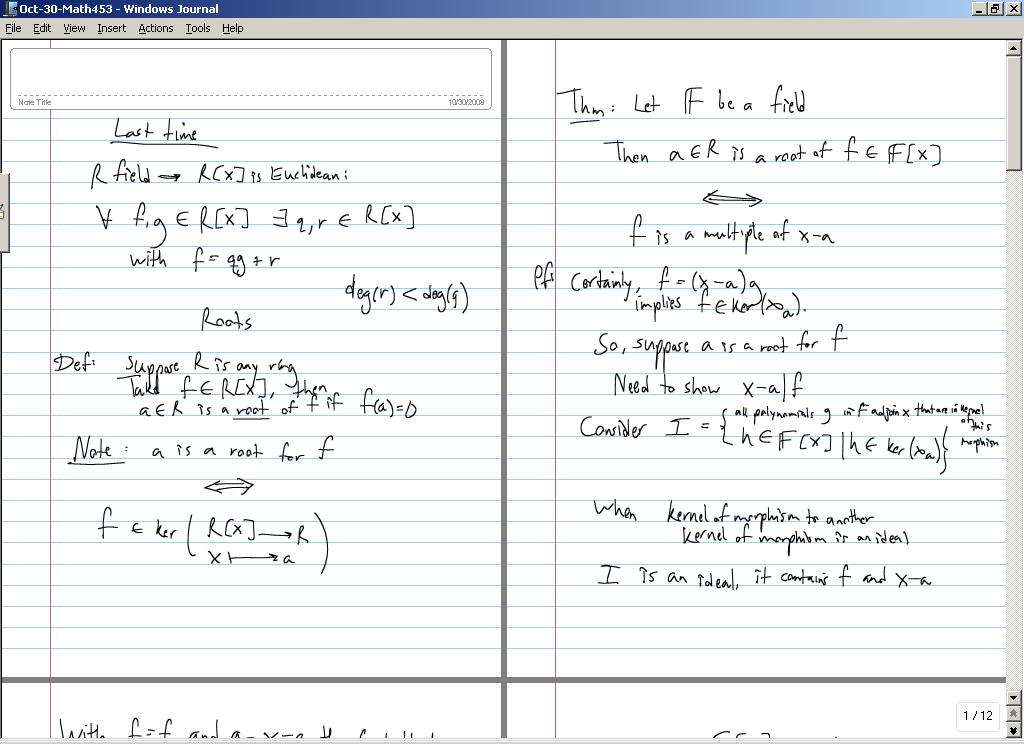 Oct-30-Math453 - Windows Journal
File Edit View Insert Actions Tools Help
Note Title
10/30/2008
Last time
R field → R[x] is Euclidean:
∀ f,g ∈ R[x] ∃ q,r ∈ R[x]
with f = qg + r
deg(r) < deg(g)
Roots
Def: Suppose R is any ring
Take f ∈ R[x], then
a ∈ R is a root of f if f(a)=0
Note: a is a root for f
⟺
f ∈ ker ( R[x] → R
x ↦ a )
Thm: Let F be a field
Then a ∈ R is a root of f ∈ F[x]
⟺
f is a multiple of x-a
Pf: Certainly, f = (x-a)g
implies f ∈ ker(x_a).
So, suppose a is a root for f
Need to show x-a|f
Consider I = { all polynomials g in F adjoin x that are in kernel of this morphism
h ∈ F[x] | h ∈ ker(x_a)}
When kernel of morphism to another
kernel of morphism is an ideal
I is an ideal, it contains f and x-a
With f=f and
1 / 12